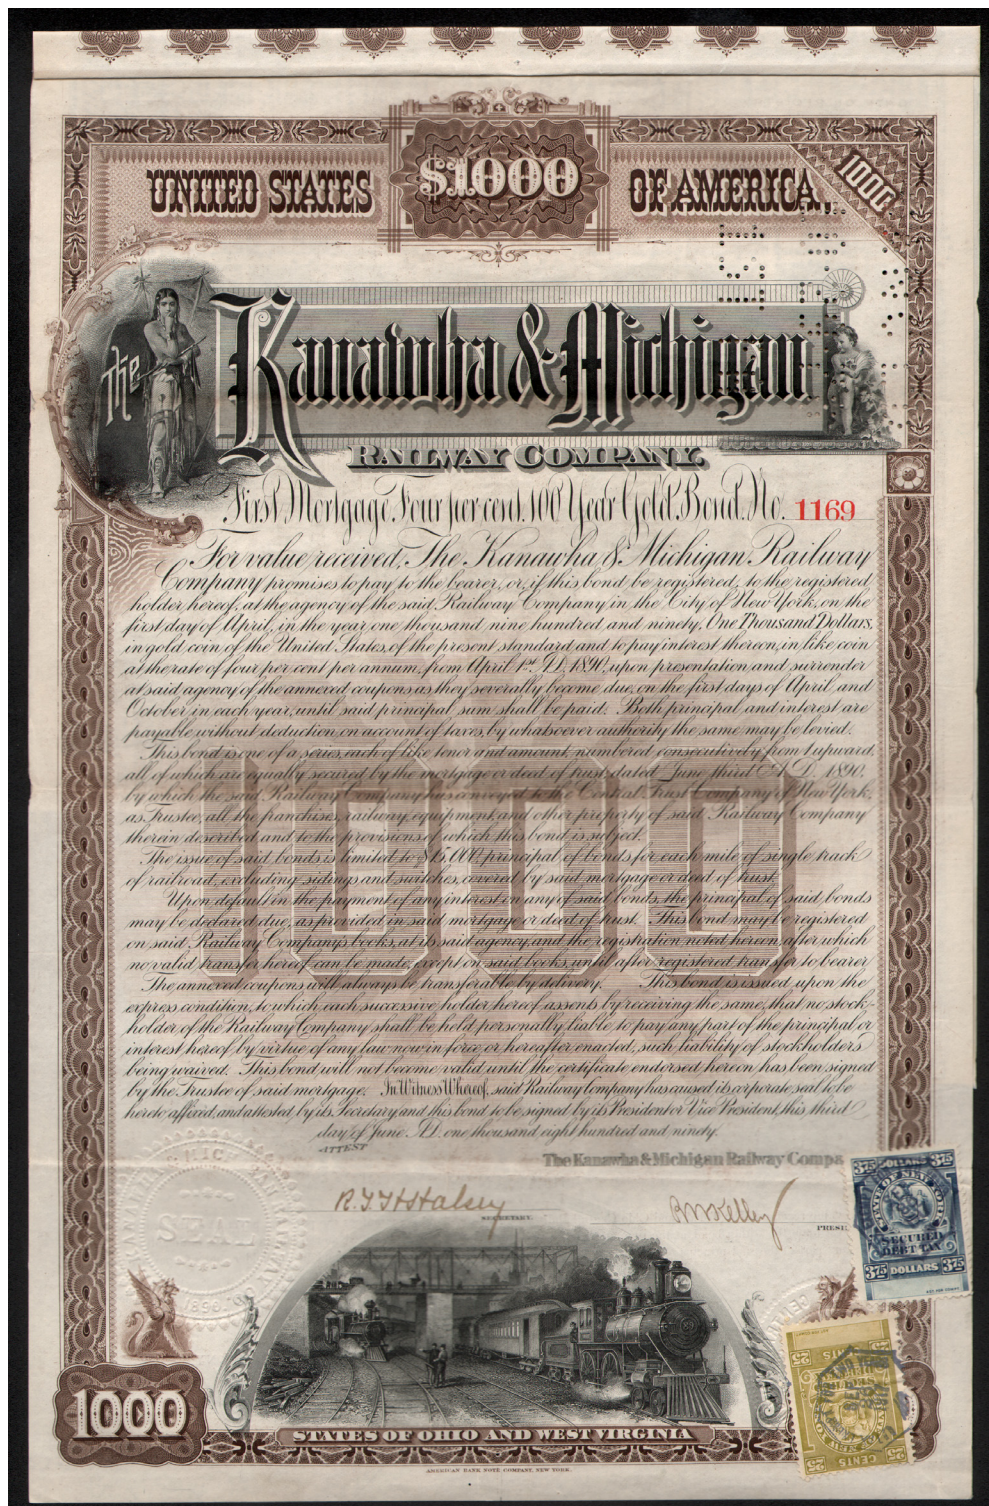 $1000
UNITED STATES OF AMERICA.
1000
The Kanawha & Michigan
RAILWAY COMPANY.
First Mortgage Four per cent. 100 Year Gold Bond. No. 1169
For value received, The Kanawha & Michigan Railway
Company promises to pay to the bearer, or, if this bond be registered, to the registered
holder hereof, at the agency of the said Railway Company in the City of New York, on the
first day of April, in the year one thousand nine hundred and ninety, One Thousand Dollars,
in gold coin of the United States, of the present standard and to pay interest thereon, in like coin
at the rate of four per cent per annum, from April 1st A.D. 1890, upon presentation and surrender
at said agency of the annexed coupons as they severally become due, on the first days of April and
October in each year, until said principal sum shall be paid. Both principal and interest are
payable without deduction on account of taxes, by whatsoever authority the same may be levied.
This bond is one of a series, each of like tenor and amount, numbered consecutively from 1 upward,
all of which are equally secured by the mortgage or deed of trust, dated June third A.D. 1890,
by which the said Railway Company has conveyed to the Central Trust Company of New York,
as Trustee, all the franchises, railway, equipment and other property of said Railway Company
therein described and to the provisions of which this bond is subject.
The issue of said bonds is limited to $15,000 principal of bonds for each mile of single track
of railroad, excluding sidings and switches, covered by said mortgage or deed of trust.
Upon default in the payment of any interest on any of said bonds, the principal of said bonds
may be declared due, as provided in said mortgage or deed of trust. This bond may be registered
on said Railway Company's books, at its said agency, and the registration noted hereon, after which
no valid transfer hereof can be made, except on said books, until after registered transfer to bearer.
The annexed coupons will always be transferable by delivery. This bond is issued upon the
express condition, to which each successive holder hereof assents by receiving the same, that no stock-
holder of the Railway Company shall be held personally liable to pay any part of the principal or
interest hereof by virtue of any law now in force or hereafter enacted, such liability of stockholders
being waived. This bond will not become valid until the certificate endorsed hereon has been signed
by the Trustee of said mortgage. In Witness Whereof, said Railway Company has caused its corporate seal to be
hereto affixed, and attested by its Secretary and this bond to be signed by its President or Vice President, this third
day of June A.D. one thousand eight hundred and ninety.
ATTEST
The Kanawha & Michigan Railway Compa
R.T.H. Halsey
SECRETARY.
PRESI
SEAL
1890
375 DOLLARS 375
STATE OF NEW YORK
SECURED
DEBT TAX
375 DOLLARS 375
25 CENTS 25
25 CENTS 25
1000
STATES OF OHIO AND WEST VIRGINIA
AMERICAN BANK NOTE COMPANY, NEW YORK.